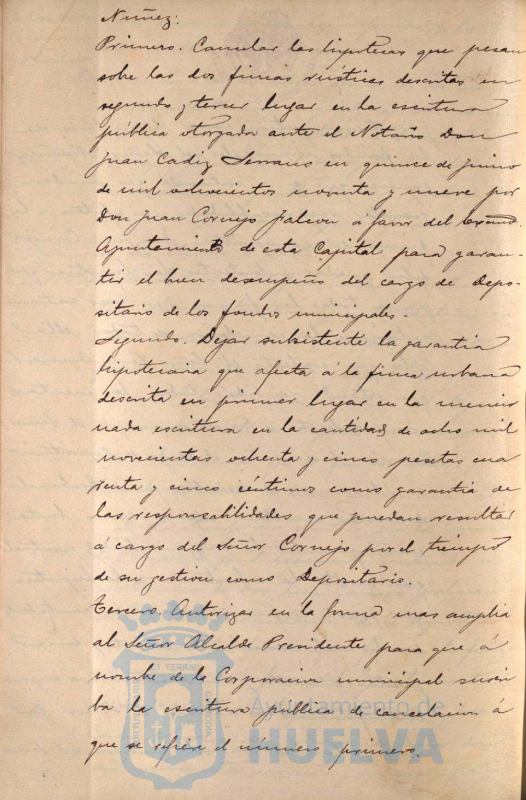 Nuñez:
Primero. Cancelar las hipotecas que pesan
sobre las dos fincas rústicas descritas en
segundo y tercer lugar en la escritura
pública otorgada ante el Notario Don
Juan Cadiz Serrano en quince de Junio
de mil ochocientos noventa y nueve por
Don Juan Cornejo á favor del Excmo.
Ayuntamiento de esta Capital para garan-
tir el buen desempeño del cargo de Depo-
sitario de los fondos municipales.
Segundo. Dejar subsistente la garantia
hipotecaria que afecta á la finca urbana
descrita en primer lugar en la mencio
nada escritura en la cantidad de ocho mil
novecientas ochenta y cinco pesetas cua
renta y cinco céntimos como garantia de
las responsabilidades que puedan resultar
á cargo del Señor Cornejo por el tiempo
de su gestion como Depositario.
Tercero. Autorizar en la forma mas amplia
al Señor Alcalde Presidente para que á
nombre de la Corporacion municipal suscri
ba la escritura publica de cancelacion á
que se refiere el número primero.
Ayuntamiento de
HUELVA